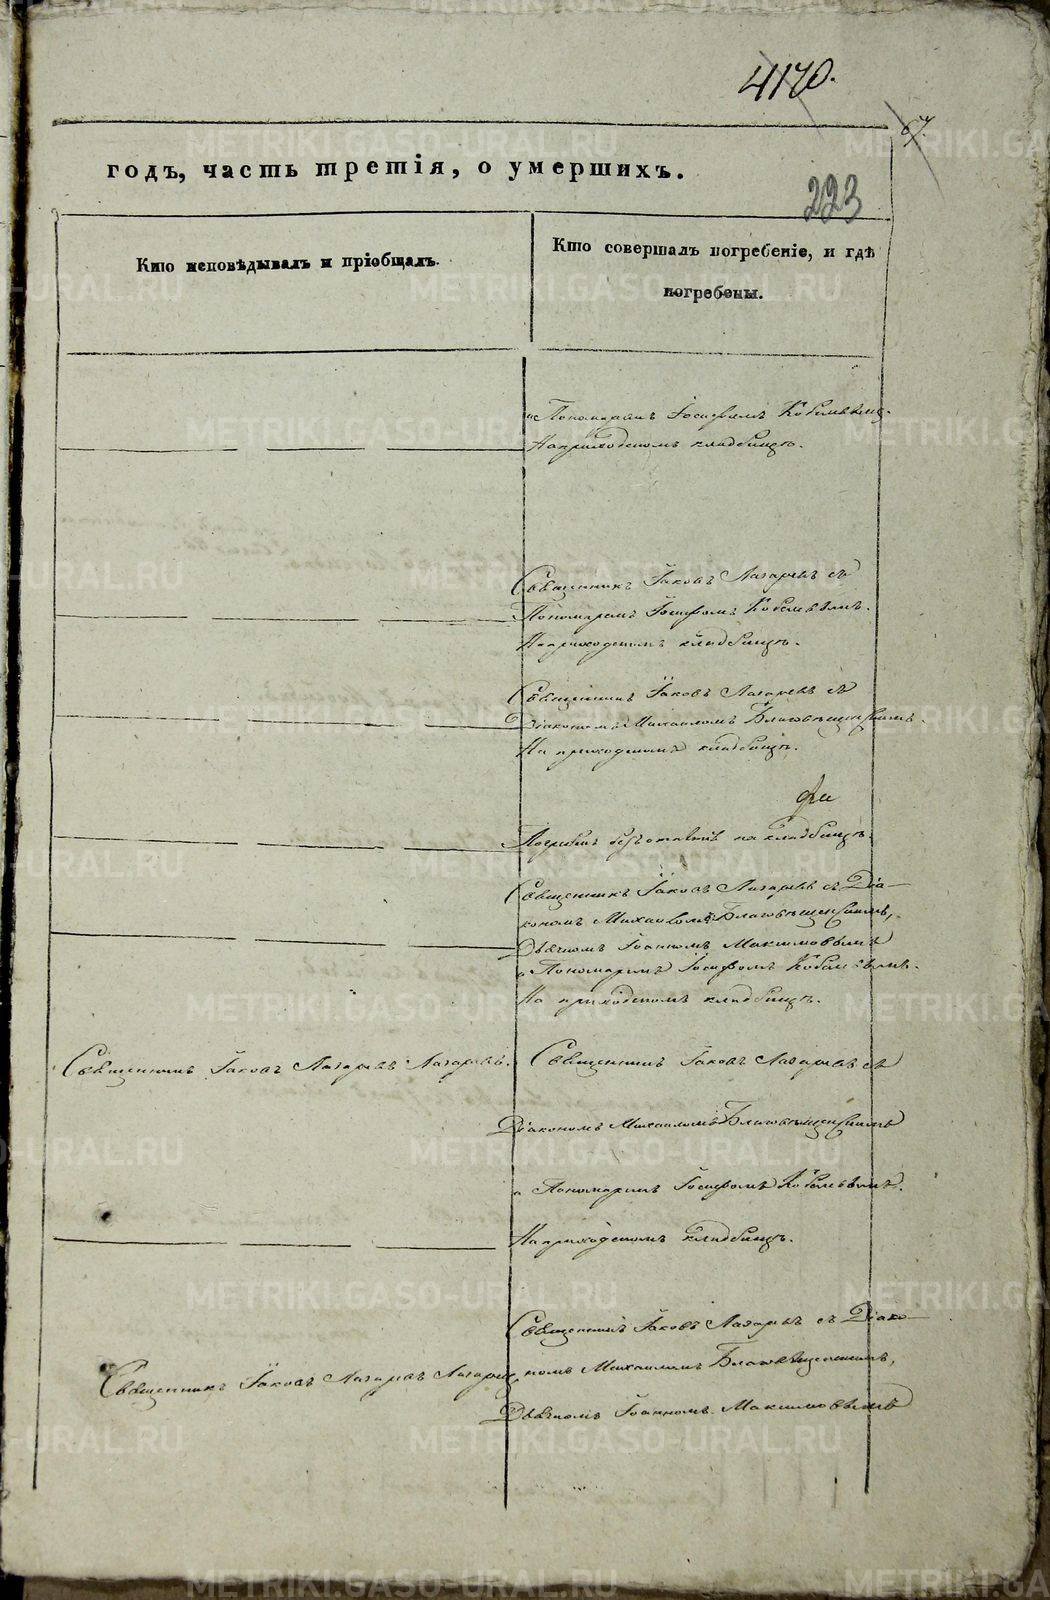 4170.
67.
годъ, часть третія, о умершихъ.
223
Кто исповѣдывалъ и пріобщалъ.
Кто совершалъ погребеніе, и гдѣ
погребены.
Пономаремъ Іосифомъ
На приходскомъ кладбищѣ.
Священникъ Іаковъ Лазаревъ съ
Пономаремъ Іосифомъ
На приходскомъ кладбищѣ.
Священникъ Іаковъ Лазаревъ съ
Діакономъ Михаиломъ Благовѣщенскимъ.
На приходскомъ кладбищѣ.
на кладбищѣ.
Священникъ Іаковъ Лазаревъ съ Діа-
кономъ Михаиломъ Благовѣщенскимъ,
Дьячкомъ Іоанномъ Максимовымъ
и Пономаремъ Іосифомъ
На приходскомъ кладбищѣ.
Священникомъ Іаковъ Лазаревъ Лазаревъ.
Священникъ Іаковъ Лазаревъ съ
Діакономъ Михаиломъ Благовѣщенскимъ
и Пономаремъ Іосифомъ
На приходскомъ кладбищѣ.
Священникъ Іаковъ Лазаревъ съ Діако-
Священникъ Іаковъ Лазаревъ
номъ Михаиломъ Благовѣщенскимъ,
Дьячкомъ Іоанномъ Максимовымъ
METRIKI.GASO-URAL.RU